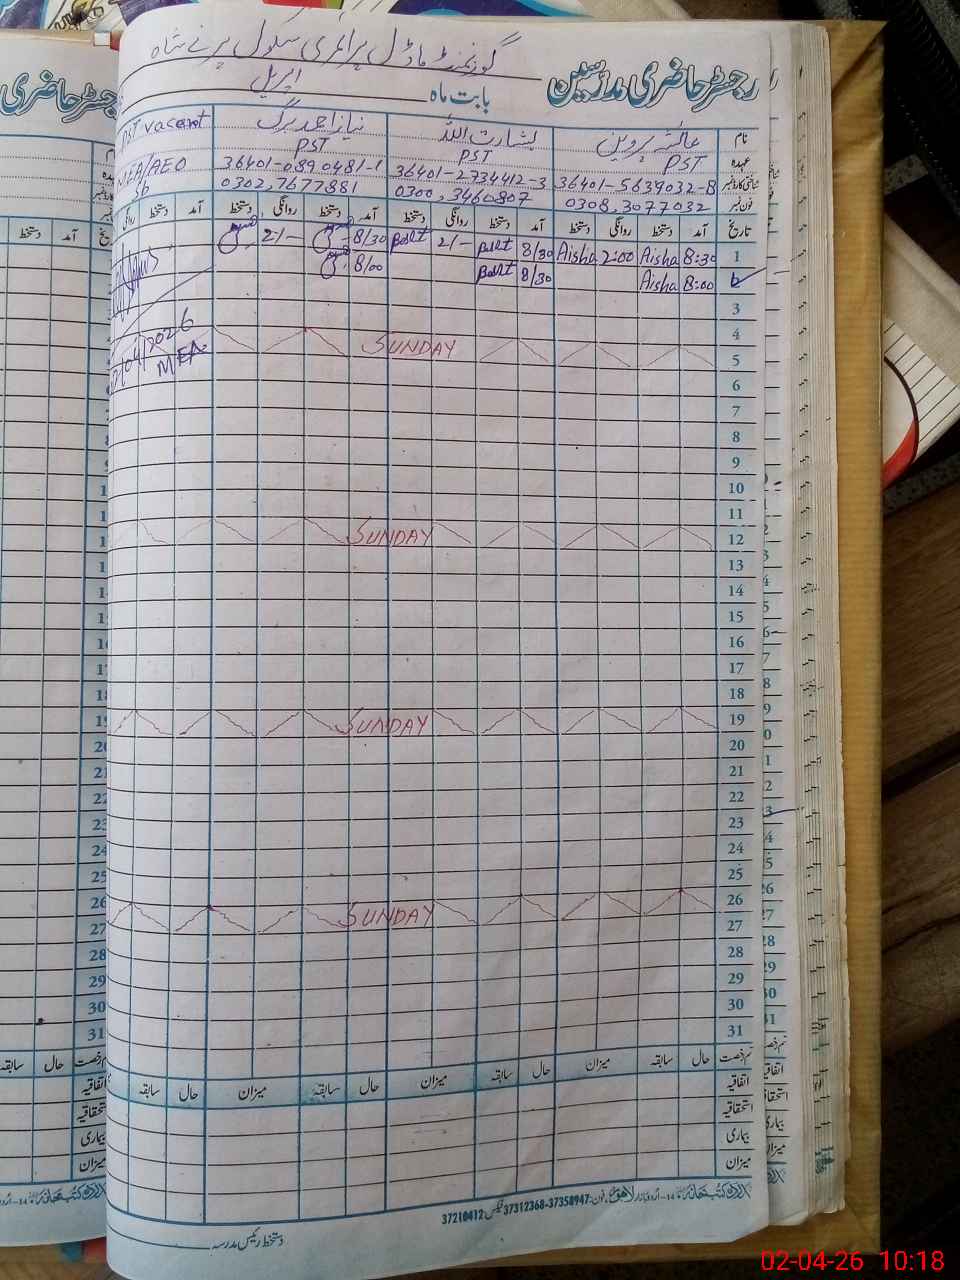 گورنمنٹ ماڈل پرائمری سکول پرنے شاہ
رجسٹر حاضری مدرسین
بابت ماہ اپریل
نام عائشہ پروین بشارت اللہ نیاز احمد برگ PST vacant
عہدہ PST PST PST MEA/AEO
شناختی کارڈ نمبر 36401-5639032-8 36401-2734412-3 36401-0890481-1
فون نمبر 0308,3077032 0300,3460807 0302,7677881
تاریخ آمد دستخط روانگی دستخط آمد دستخط روانگی دستخط آمد دستخط روانگی دستخط آمد دستخط
1 8:30 Aisha 2:00 Aisha 8/30 2/- 8/30 2/-
8:00 Aisha 8/30 8/00
3
4
5 SUNDAY
6
7
8
9
10
11
12 SUNDAY
13
14
15
16
17
18
19 SUNDAY
20
21
22
23
24
25
26 SUNDAY
27
28
29
30
31
MEA
قسم رخصت حال سابقہ میزان حال سابقہ میزان حال سابقہ میزان حال سابقہ
اتفاقیہ
استحقاقیہ
بیماری
میزان
37210412 فیکس: 37312368-37358947 فون:
دستخط رئیس مدرسہ
02-04-26 10:18